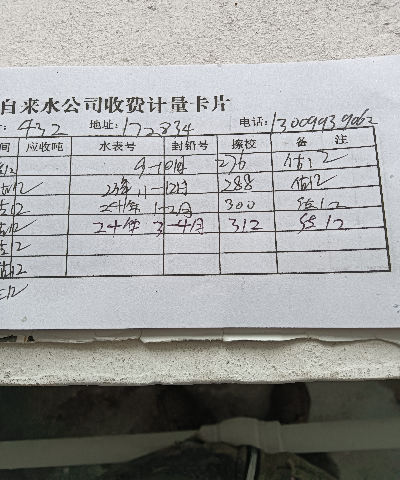 自来水公司收费计量卡片
432 地址: 172834 电话: 13009939062
间 应收吨 水表号 封铅号 擦校 备 注
9-10月 276 估12
估12 23年 11-12月 288 估12
估12 24年 1-2月 300 估12
估12 24年 3-4月 312 估12
估12
估12